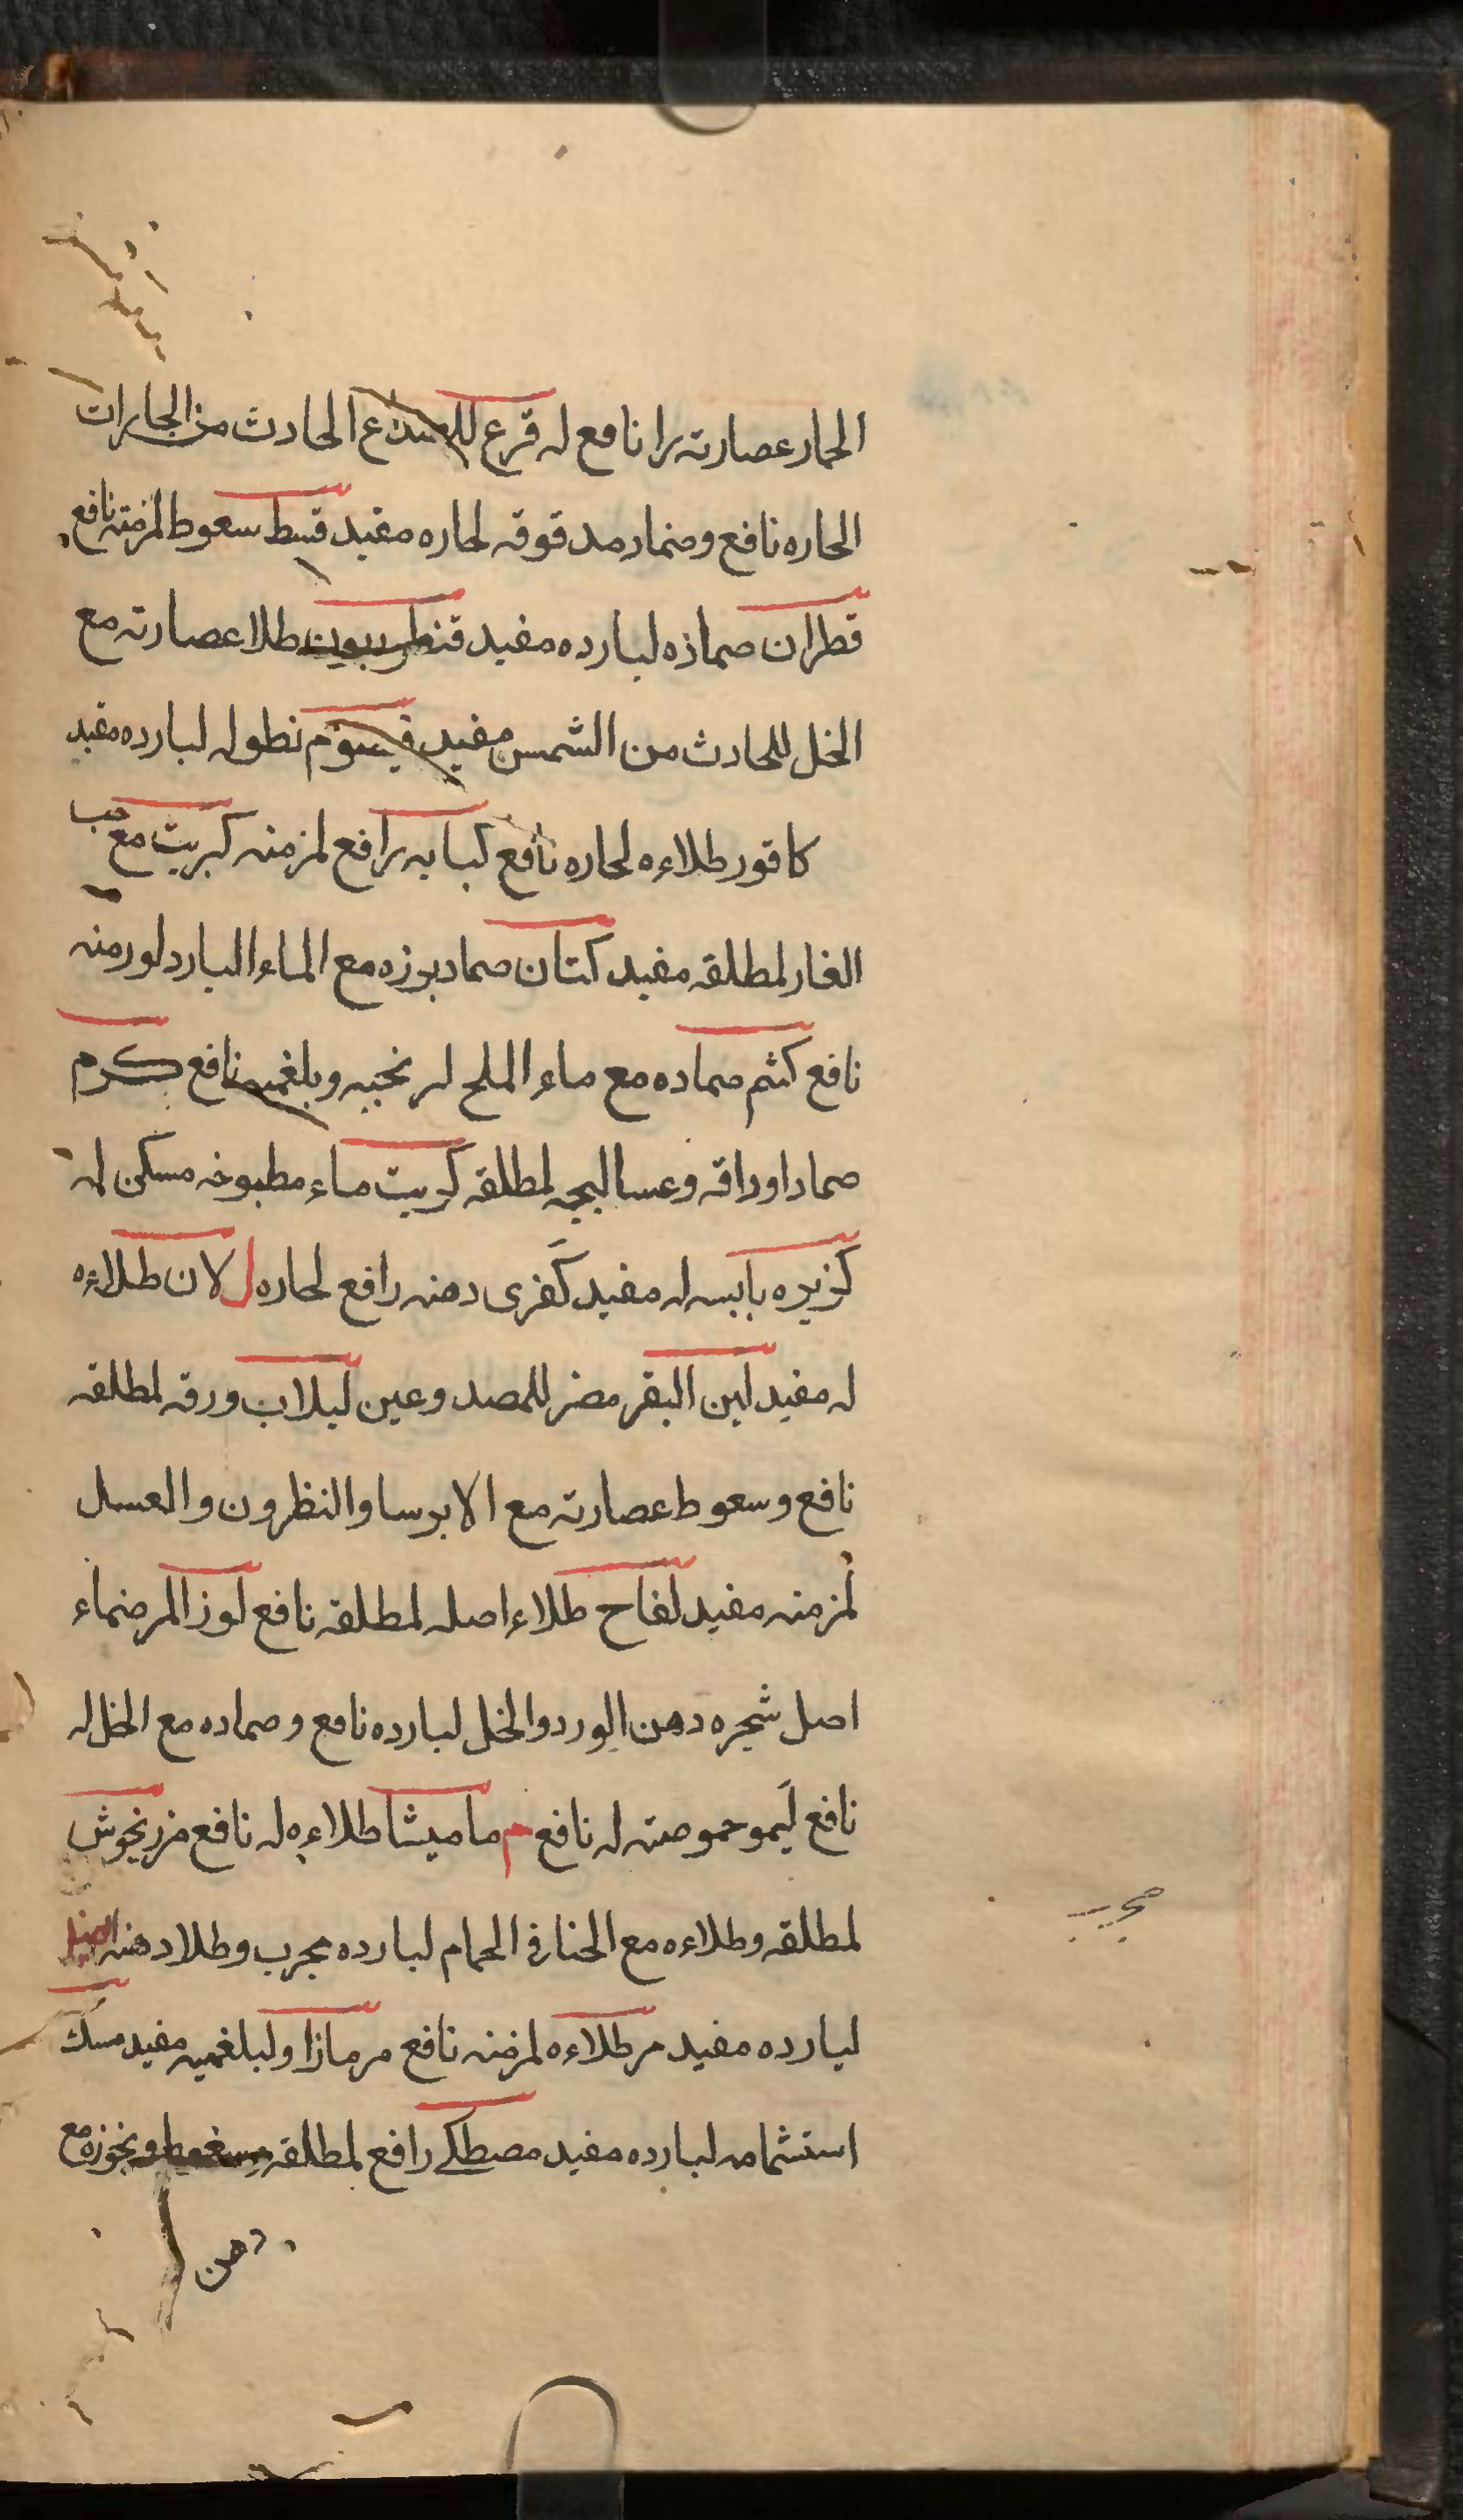 الحمار عصارته را نافع له قرع للصدع الحادث من البخارات
الحاره نافع وضماد مدقوقه لحاره مفيد قسط سعوط لمزمنه نافع
قطران ضماده لبارده مفيد قنطريون طلا عصارته مع
الخل للحادث من الشمس مفيد قيسوم نطوله لبارده مفيد
كافور طلاءه لحاره نافع كبابه رافع لمزمنه كبريت مع حب
الغار لمطلقه مفيد كتان ضماد بوزه مع الماء البارد لورمنه
نافع كثم ضماده مع ماء الملح لريحيه وبلغميه نافع كرم
ضماد اوراقه وعساليجه لمطلقه كربيت ماء مطبوخه مسكن له
كزبره يابسه له مفيد كفرى دهنه رافع لحاره ل لان طلاءه
له مفيد لبن البقر مضر للمصدوعين لبلاب ورقه لمطلقه
نافع وسعوط عصارته مع الايرسا والنظرون والعسل
لمزمنه مفيد لفاح طلاء اصله لمطلقه نافع لوز المر ضماء
اصل شجره دهن الورد والخل لبارده نافع وضماده مع الخل له
نافع ليمو حموضته له نافع م ماميشا طلاءه له نافع مرزنجوش
لمطلقه وطلاءه مع الحنا في الحمام لبارده مجرب وطلا دهنه
مجرب
لبارده مفيد مر طلاءه لمزمنه نافع مرمازا ولبلغميه مفيد مسك
استشمامه لبارده مفيد مصطكى رافع لمطلقه وبخوره مع
دهن